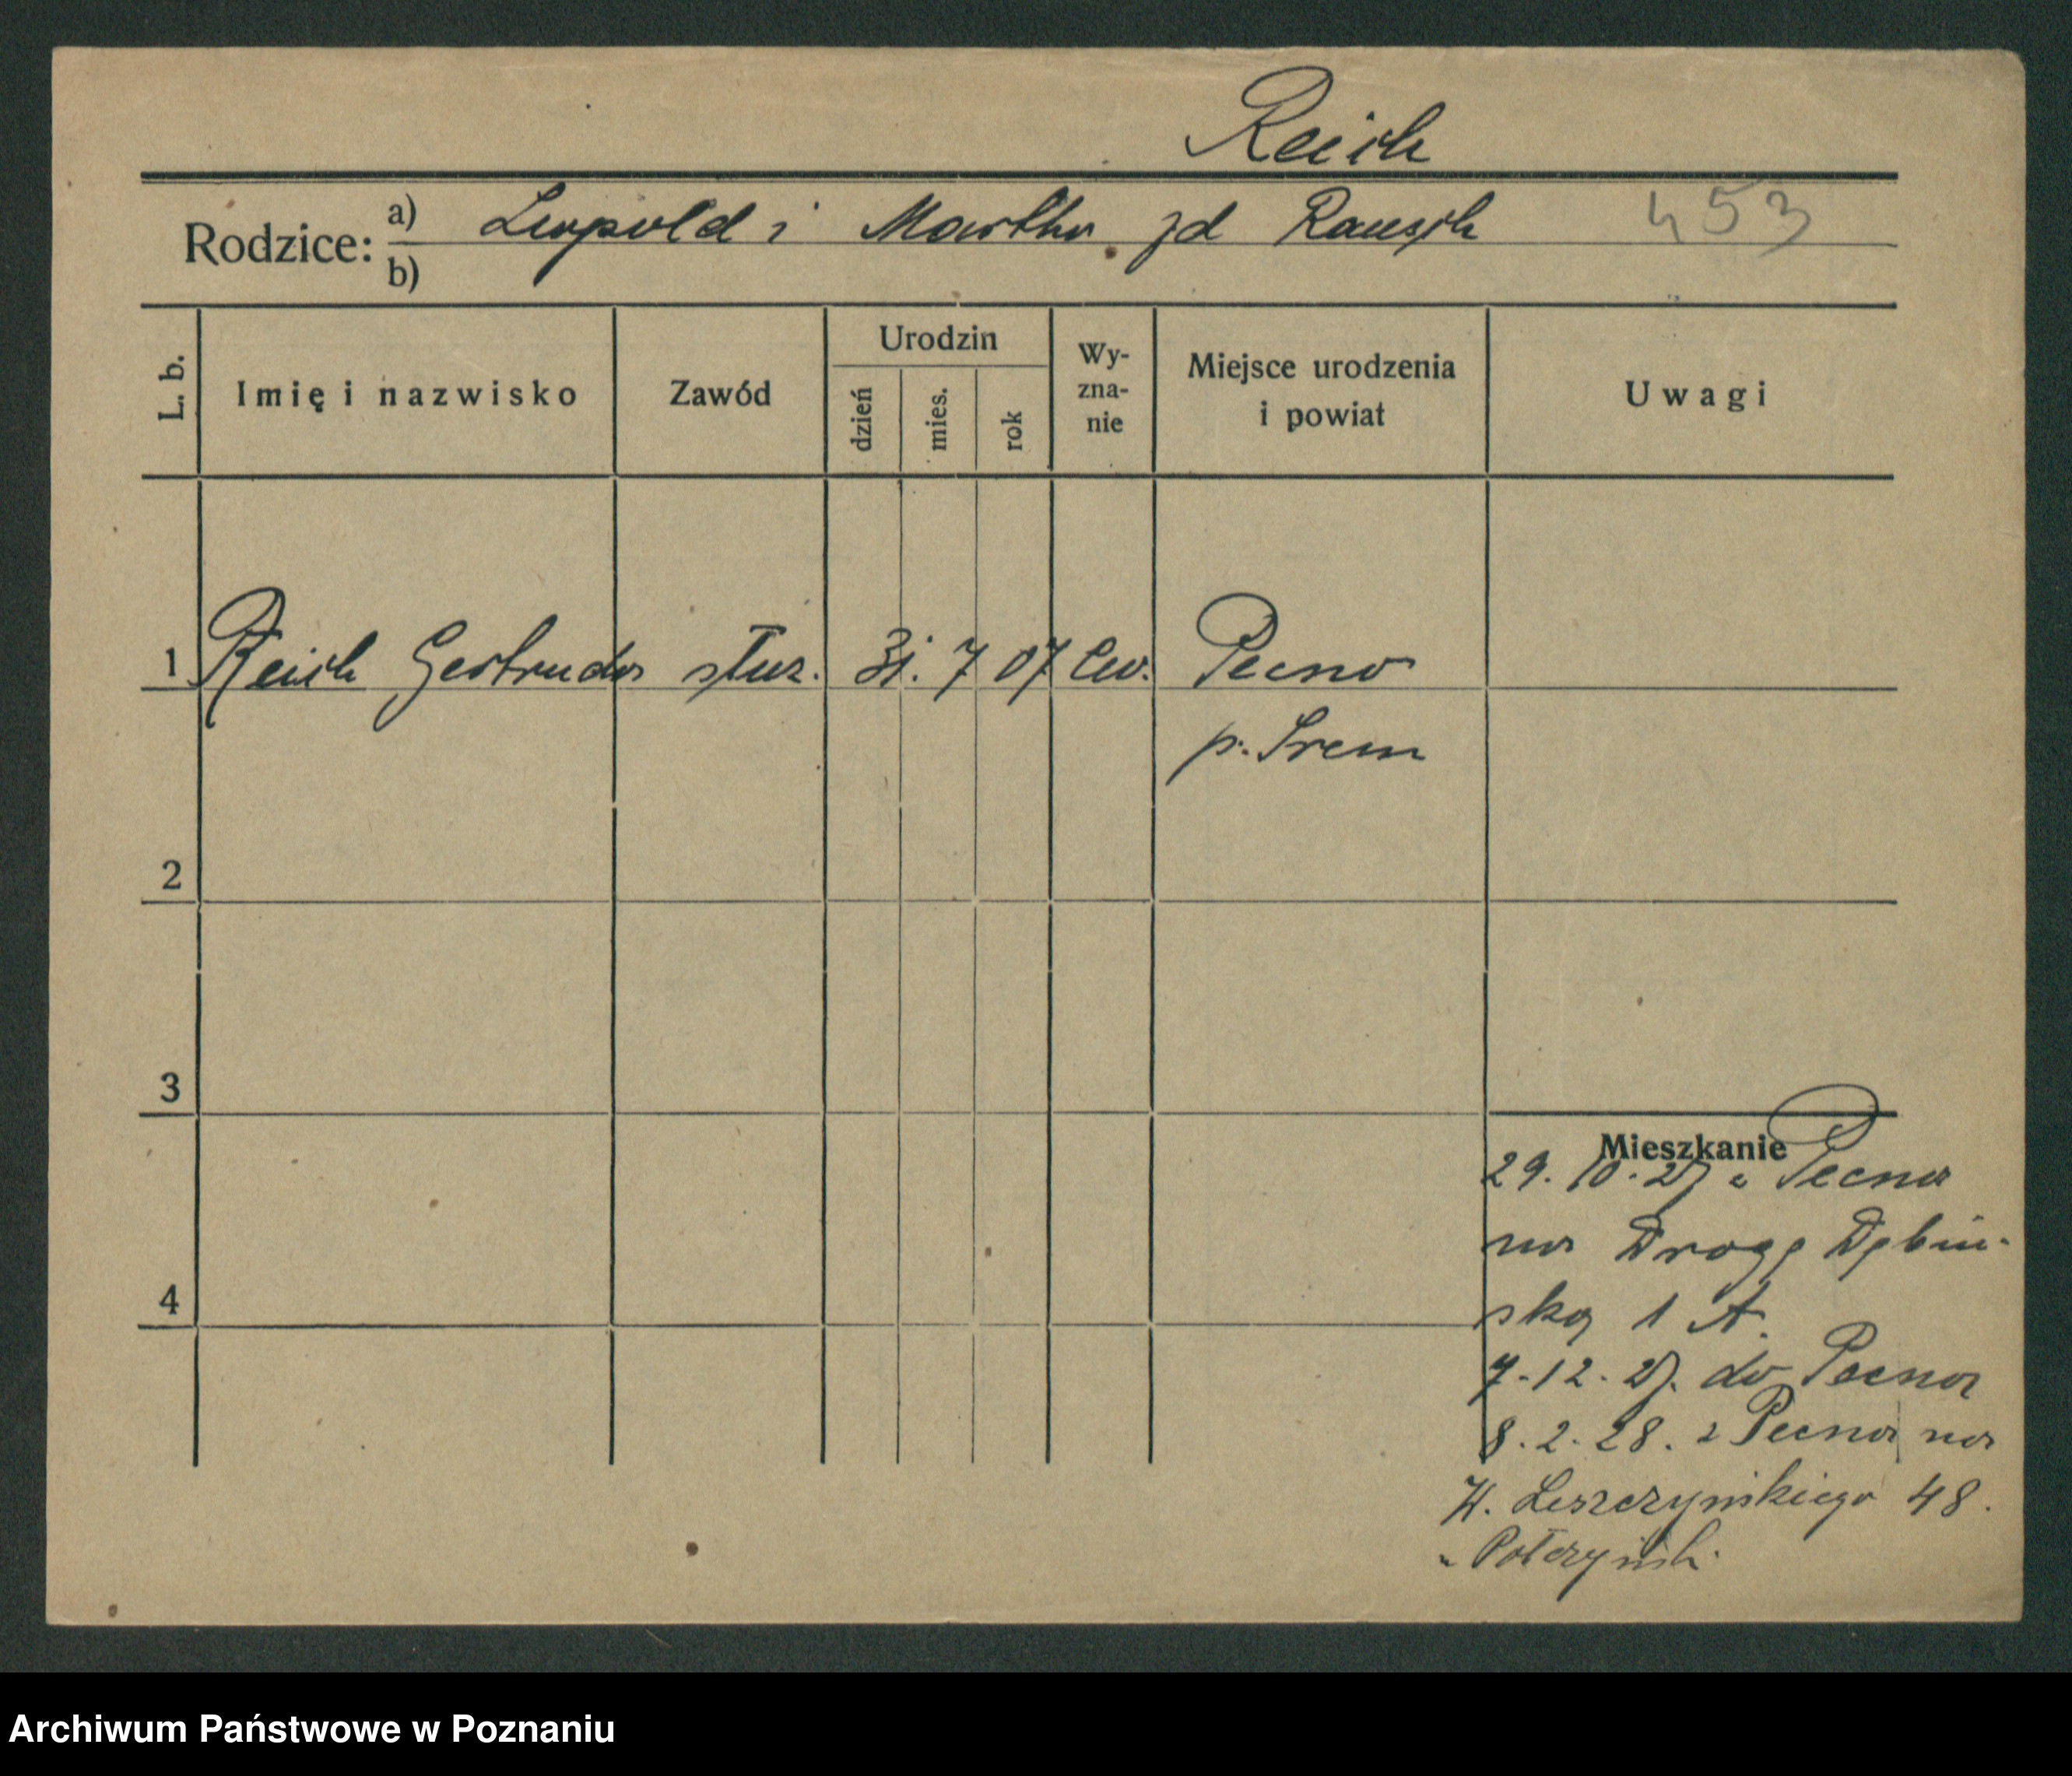 Reich
Rodzice: a) Leopold i Martha zd Rausch 453
b)
L. b. Imię i nazwisko Zawód Urodzin dzień mies. rok Wy-zna-nie Miejsce urodzenia i powiat Uwagi
1 Reich Gertruda służ. 31. 7 07 Ew. Pecno
p. Śrem
2
3
Mieszkanie
29. 10. 27 z Pecna
na Drogę Dębiń-
4
ską 1 A.
7. 12. 27. do Pecna
8. 2. 28. z Pecna na
Leszczyńskiego 48.
Archiwum Państwowe w Poznaniu